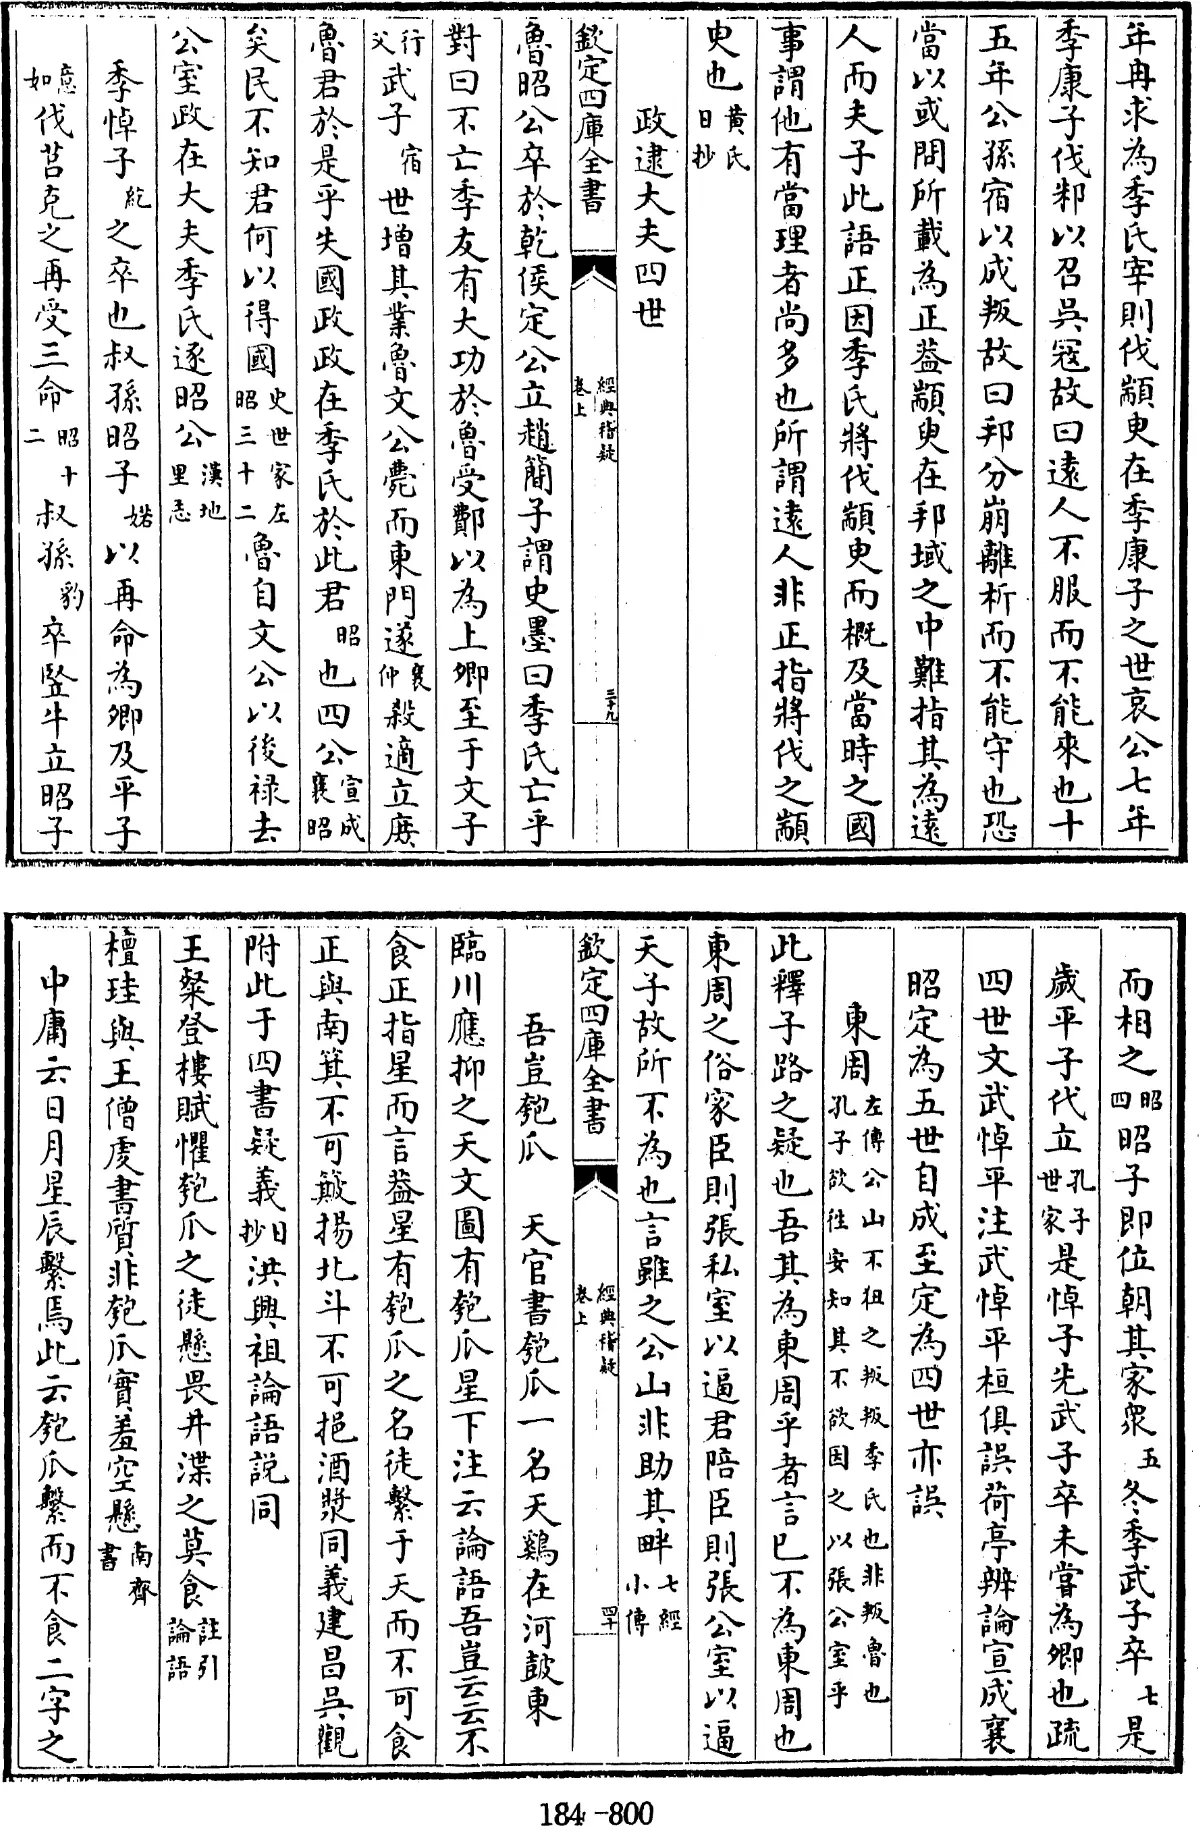 年冉求為季氏宰則伐顓臾在季康子之世哀公七年
季康子伐邾以召吳寇故曰遠人不服而不能來也十
五年公孫宿以成叛故曰邦分崩離析而不能守也恐
當以或問所載為正葢顓臾在邦域之中難指其為逺
人而夫子此語正因季氏將伐顓臾而概及當時之國
事謂他有當理者尚多也所謂逺人非正指將伐之顓
臾也黄氏日抄
政逮大夫四世
欽定四庫全書
經典稽疑
卷上
三十九
魯昭公卒於乾侯定公立趙簡子謂史墨曰季氏亡乎
對曰不亡季友有大功於魯受鄪以為上卿至于文子
行父武子宿世增其業魯文公薨而東門遂襄仲殺適立庶
魯君於是乎失國政政在季氏於此君昭也四公宣成襄昭
矣民不知君何以得國史世家左昭三十二魯自文公以後禄去
公室政在大夫季氏逐昭公漢地里志
季悼子紇之卒也叔孫昭子婼以再命為卿及平子
意如伐莒克之再受三命昭十二叔孫豹卒竪牛立昭子
而相之昭四昭子即位朝其家衆五冬季武子卒七是
歲平子代立孔子世家是悼子先武子卒未嘗為卿也疏
四世文武悼平注武悼平桓俱誤荷亭辨論宣成襄
昭定為五世自成至定為四世亦誤
東周左傳公山不狃之叛叛季氏也非叛魯也孔子欲往安知其不欲因之以張公室乎
此釋子路之疑也吾其為東周乎者言巳不為東周也
東周之俗家臣則張私室以逼君陪臣則張公室以逼
天子故所不為也言雖之公山非助其畔七經小傳
欽定四庫全書
經典稽疑
卷上
四十
吾豈匏瓜　天官書匏瓜一名天鷄在河鼓東
臨川應抑之天文圖有匏瓜星下注云論語吾豈云云不
食正指星而言葢星有匏瓜之名徒繫于天而不可食
正與南箕不可簸揚北斗不可挹酒漿同義建昌吳觀
附此于四書疑義日抄洪興祖論語説同
王粲登樓賦懼匏瓜之徒懸畏井渫之莫食註引論語
檀珪與王僧虔書質非匏瓜實羞空懸南齊書
中庸云日月星辰繫焉此云匏瓜繫而不食二字之
184-800